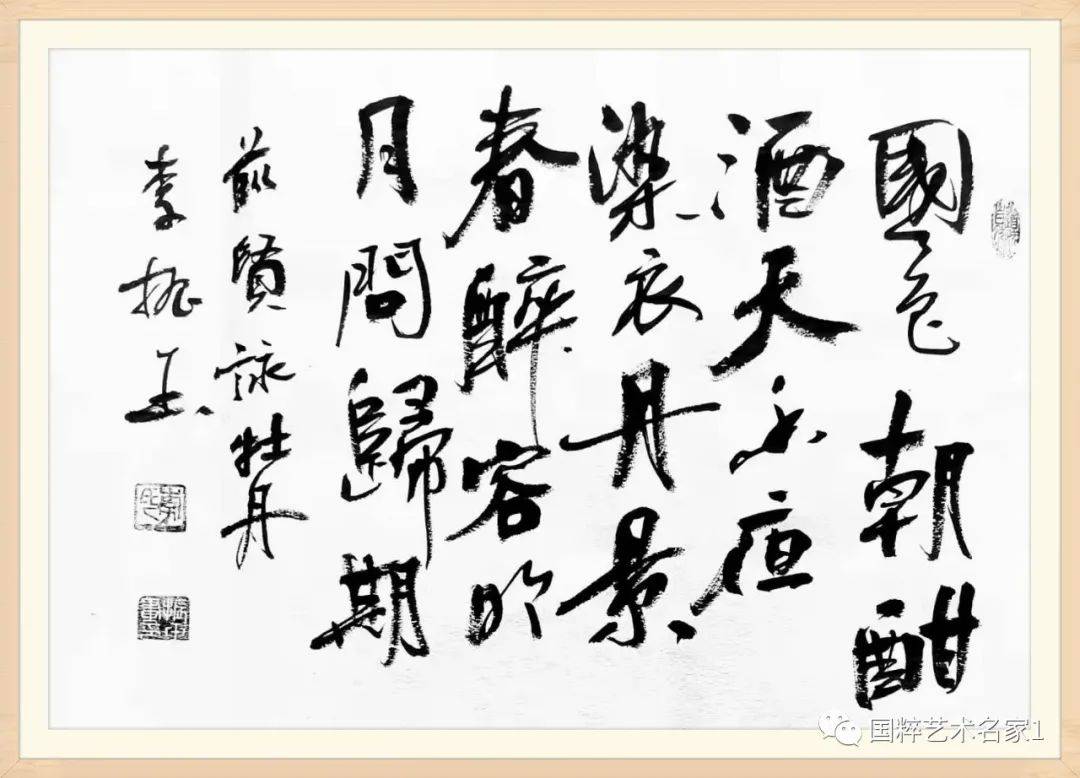 國色朝酣
酒天香夜
染衣丹景
春醉容明
月問歸期
前賢詠牡丹
李
国粹艺术名家1